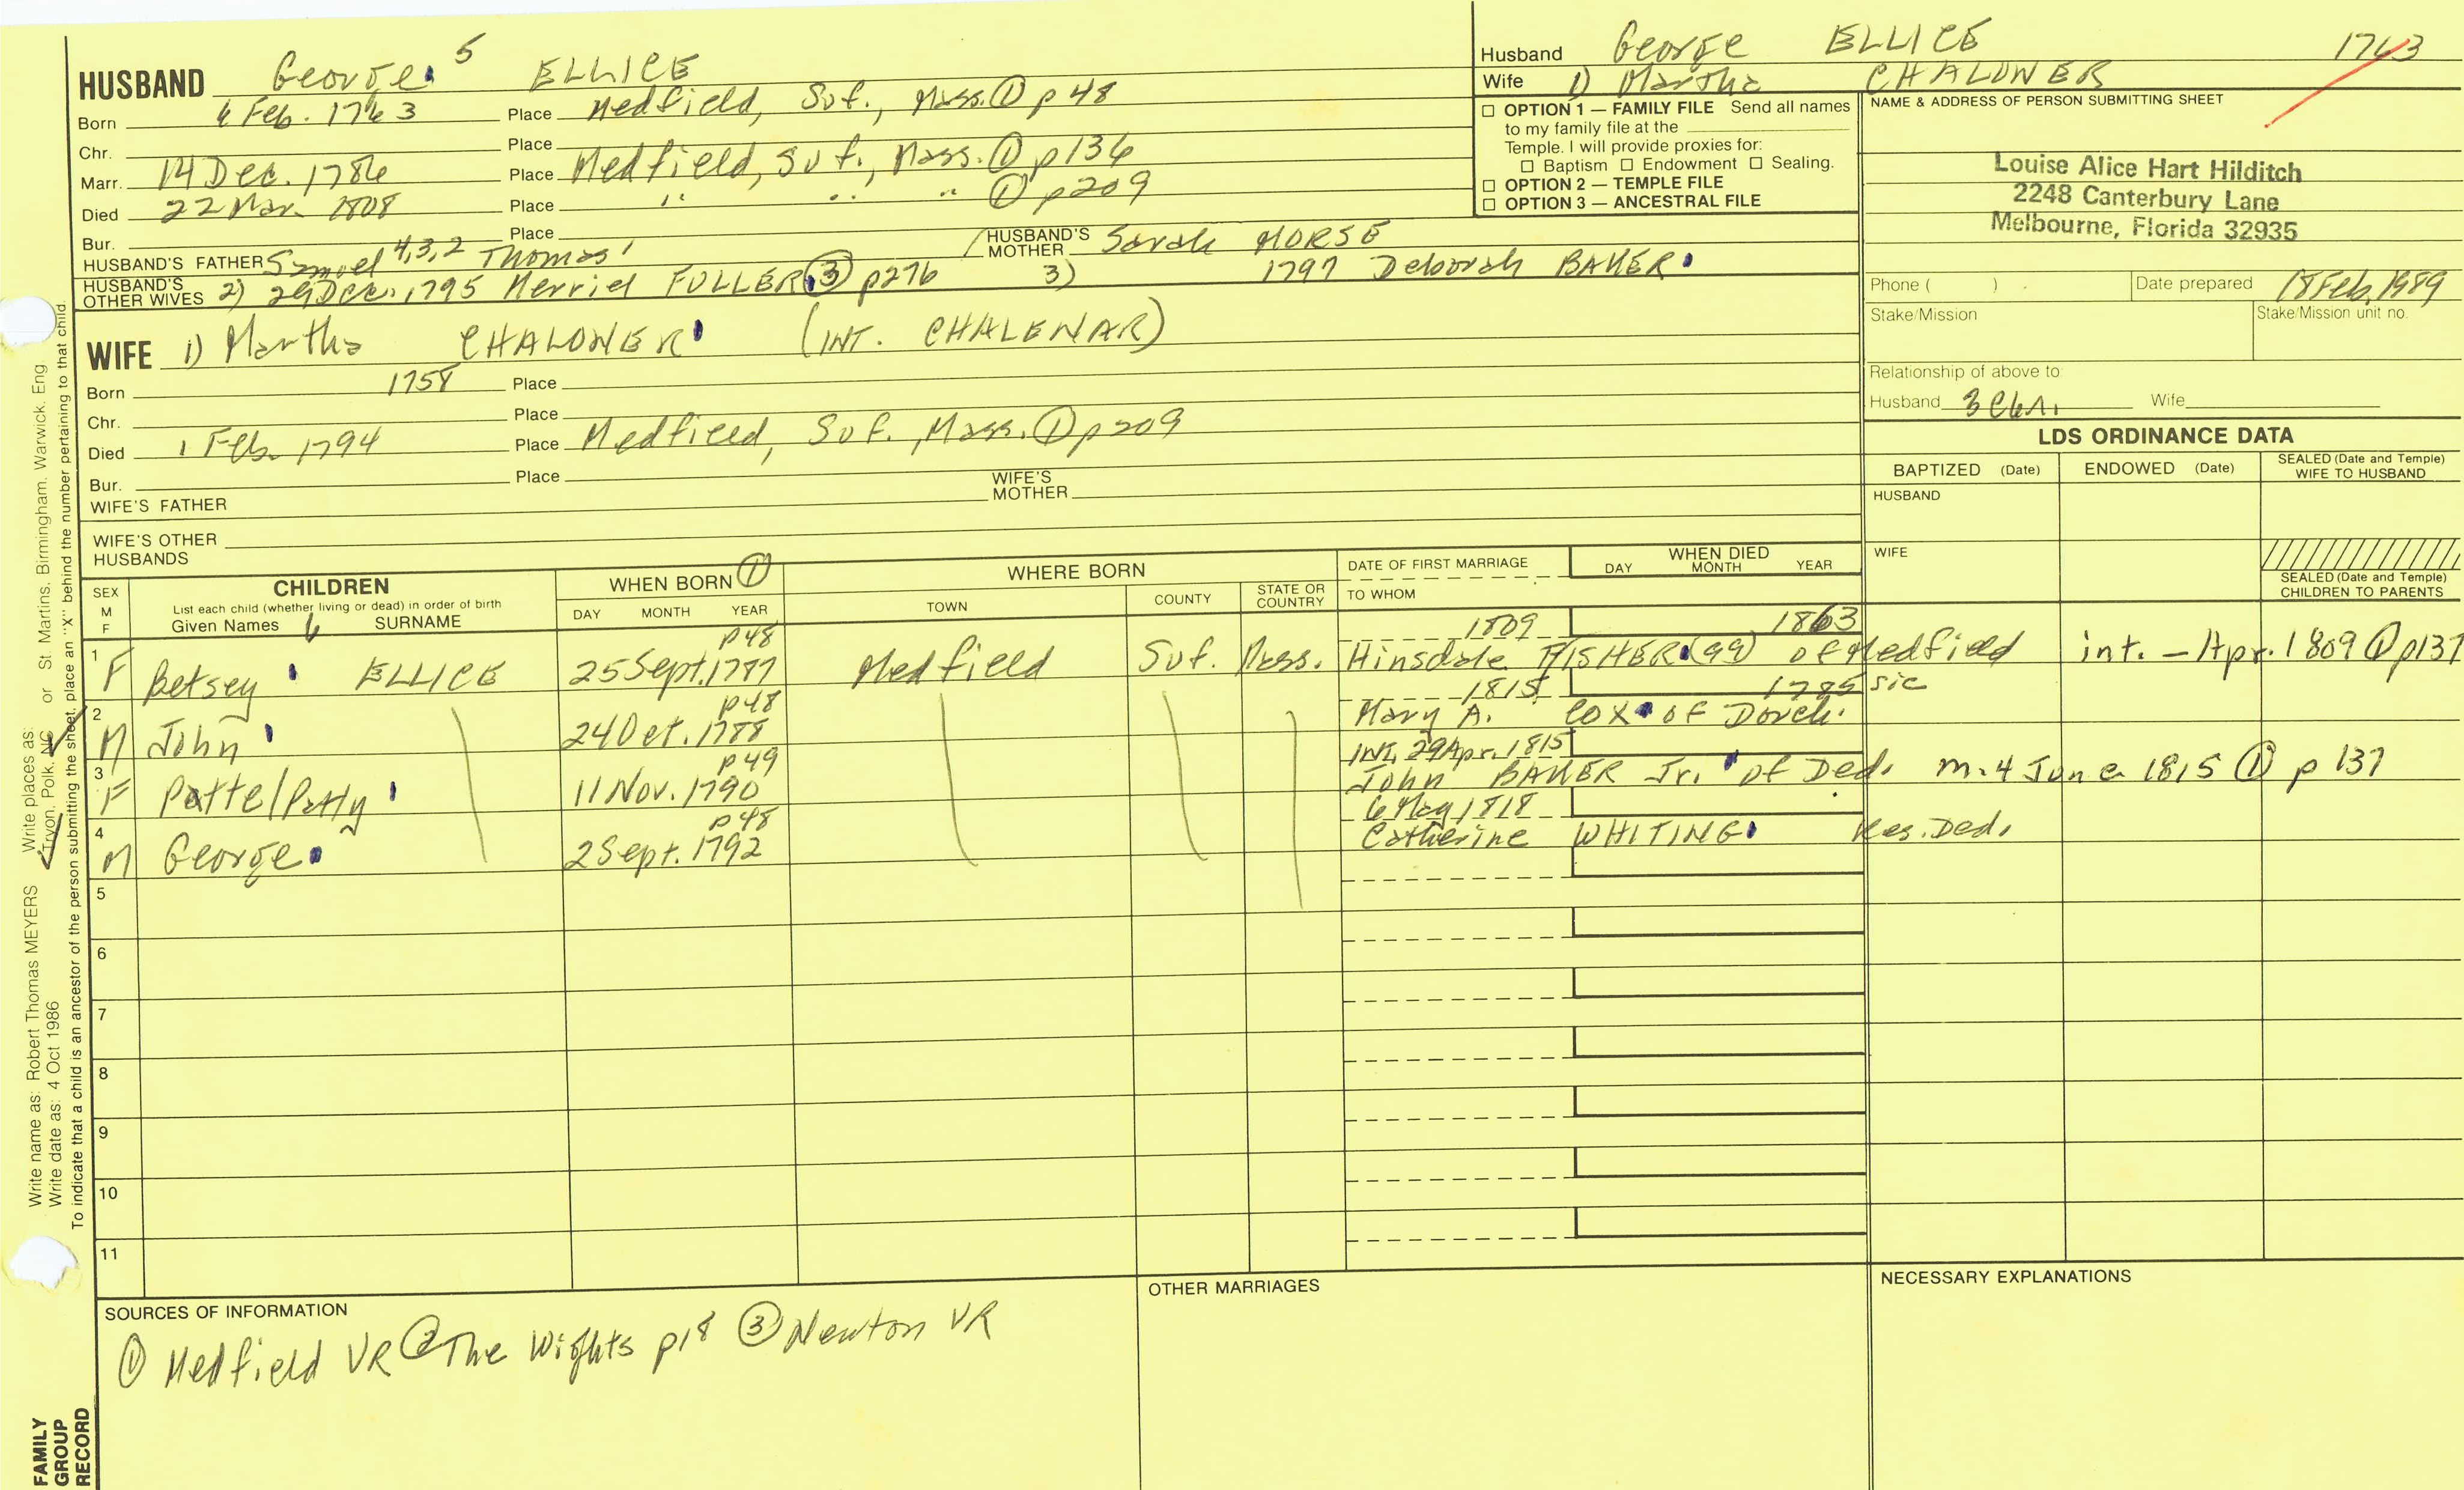 HUSBAND George 5 ELLICE
Born 6 Feb. 1763 Place Medfield, Suf., Mass. ① p 48
Chr. Place
Marr. 14 Dec. 1786 Place Medfield, Suf., Mass. ① p 136
Died 22 Mar. 1808 Place " " " ① p 209
Bur. Place
HUSBAND'S FATHER Samuel 4,3,2 Thomas 1 HUSBAND'S MOTHER Sarah MORSE
HUSBAND'S OTHER WIVES 2) 29 Dec. 1795 Merriel FULLER ③ p276 3) 1797 Deborah BAKER
WIFE 1) Martha CHALONER (INT. CHALENAR)
Born 1758 Place
Chr. Place
Died 1 Feb. 1794 Place Medfield, Suf., Mass. ① p 209
Bur. Place
WIFE'S FATHER WIFE'S MOTHER
WIFE'S OTHER HUSBANDS
Husband George ELLICE 1763
Wife 1) Martha CHALONER
☐ OPTION 1 — FAMILY FILE Send all names
to my family file at the
Temple. I will provide proxies for:
☐ Baptism ☐ Endowment ☐ Sealing.
☐ OPTION 2 — TEMPLE FILE
☐ OPTION 3 — ANCESTRAL FILE
NAME & ADDRESS OF PERSON SUBMITTING SHEET
Louise Alice Hart Hilditch
2248 Canterbury Lane
Melbourne, Florida 32935
Phone ( ) Date prepared 18 Feb. 1989
Stake/Mission Stake/Mission unit no.
Relationship of above to:
Husband Wife
LDS ORDINANCE DATA
BAPTIZED (Date) ENDOWED (Date) SEALED (Date and Temple) WIFE TO HUSBAND
HUSBAND
WIFE
SEALED (Date and Temple) CHILDREN TO PARENTS
SEX M F CHILDREN WHEN BORN ① WHERE BORN DATE OF FIRST MARRIAGE WHEN DIED
List each child (whether living or dead) in order of birth
Given Names 6 SURNAME DAY MONTH YEAR TOWN COUNTY STATE OR COUNTRY TO WHOM DAY MONTH YEAR
p48 1809 1863
1 F Betsey ELLICE 25 Sept. 1787 Medfield Suf. Mass. Hinsdale FISHER (99) of Medfield int. – Apr. 1809 ① p137
p48 1815 1785 sic
2 M John 24 Oct. 1788 Mary A. COX of Dorch.
p49 INT. 29 Apr. 1815
3 F Patte/Patty 11 Nov. 1790 John BAKER Jr. of Ded. m. 4 June 1815 ① p 137
p48 6 May 1818
4 M George 2 Sept. 1792 Catherine WHITING Res. Ded.
5
6
7
8
9
10
11
SOURCES OF INFORMATION OTHER MARRIAGES NECESSARY EXPLANATIONS
① Medfield VR ② The Wights p18 ③ Newton VR
Write name as: Robert Thomas MEYERS Write places as: Tryon, Polk, NC or St Martins, Birmingham, Warwick, Eng
Write date as: 4 Oct 1986
To indicate that a child is an ancestor of the person submitting the sheet, place an "X" behind the number pertaining to that child.
FAMILY
GROUP
RECORD